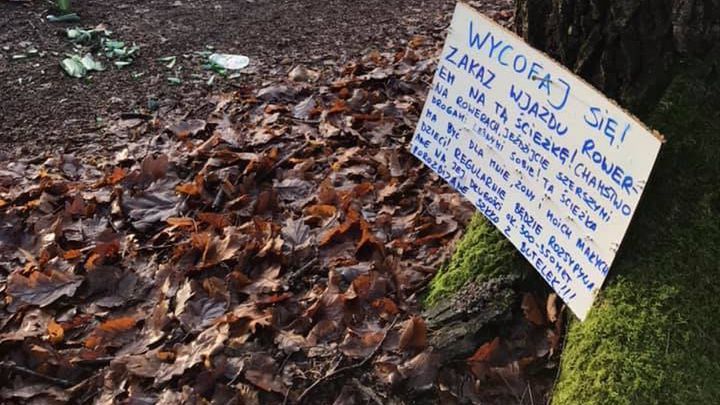 WYCOFAJ SIĘ!
ZAKAZ WJAZDU ROWER-
EM NA TĄ ŚCIEŻKĘ! CHAMSTWO
NA ROWERACH, JEŹDŹCIE SZERSZYMI
DROGAMI LEŚNYMI SOBIE! TA ŚCIEŻKA
MA BYĆ DLA MNIE, ŻONY I MOICH MAŁYCH
DZIECI! REGULARNIE BĘDZIE ROZSYPYWA-
NE NA JEJ DŁUGOŚCI OK. 300-350 MET.
POROZBIJANE SZKŁO Z BUTELEK!!!